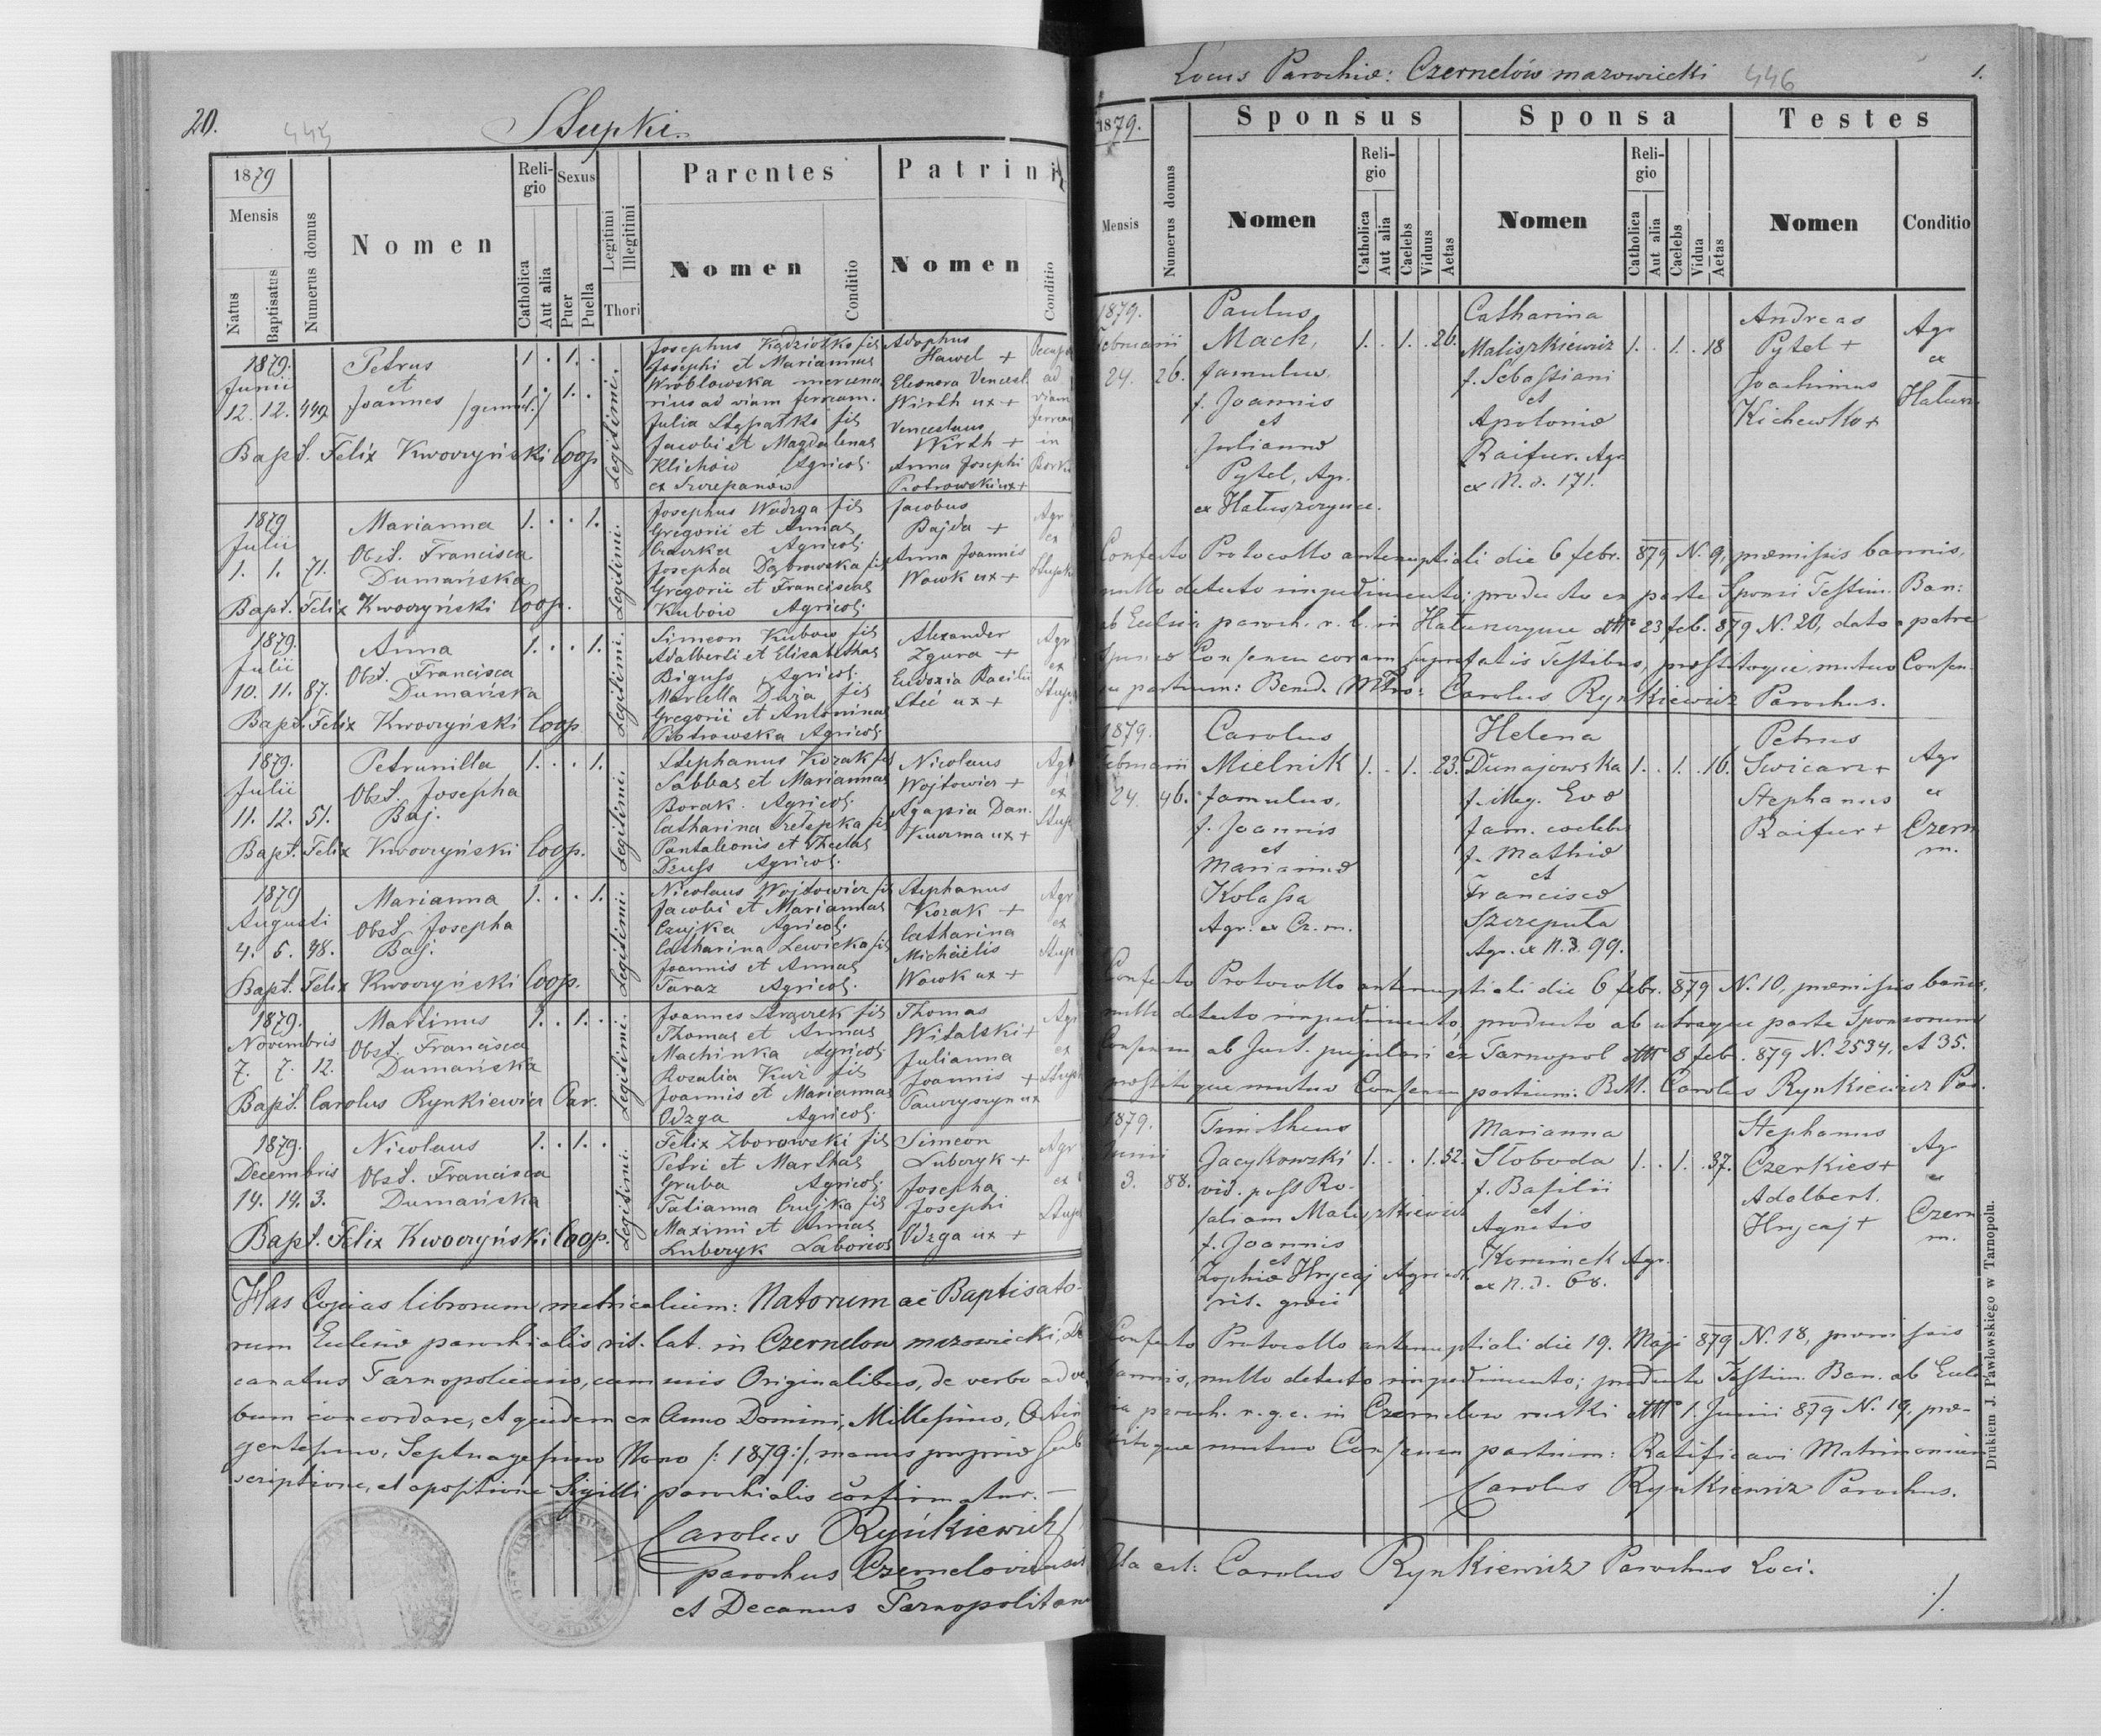 20.
443
Stupki.
1879
Mensis
Natus
Baptisatus
Numerus domus
Nomen
Religio
Catholica
Aut alia
Sexus
Puer
Puella
Legitimi
Illegitimi
Thori
Parentes
Nomen
Conditio
Patrini
Nomen
Conditio
1879. Petrus 1. . 1. .
Junii et
12. 12. 449 Joannes /gemel./ 1. . 1. .
Bapt. Felix Kwoczyński Coop.
Legitimi.
Josephus Kądziołko fil
Josephi et Mariannae
Wróblowska mercena
rius ad viam ferream.
Julia fil
Jacobi et Magdalenae
Klichów Agricol.
ex Szczepanow
Adophus
Hawel +
Eleonora Vencesl.
Wirth ux +
Venceslaus
Wirth +
Anna Josephi
Piotrowski ux +
ad
viam
ferream
in
Borki
1879 Marianna 1. . . 1.
Julii Obst. Francisca
1. 1. 71. Dumańska
Bapt. Felix Kwoczyński Coop.
Legitimi.
Josephus Wodzga fil
Gregorii et Annae
Agricol.
Josepha Dąbrowska fil
Gregorii et Franciscae
Kubów Agricol.
Jacobus
Bajda +
Anna Joannis
Wowk ux +
Agr
ex
Stupki
1879. Anna 1. . . 1.
Julii Obst. Francisca
10. 11. 87. Dumańska
Bapt. Felix Kwoczyński Coop
Legitimi.
Simeon Kubow fil
Adalberti et Elisabethae
Biguss Agricol.
Marcella Duja fil
Gregorii et Antoninae
Piotrowska Agricol
Alexander
Zgura +
Eudoxia Basilii
Steć ux +
Agr
ex
Stup
1879. Petrunilla 1. . . 1.
Julii Obst. Josepha
11. 12. 51. Baj.
Bapt. Felix Kwoczyński Coop.
Legitimi.
Stephanus Kozak fil
Sabbae et Mariannae
Borak. Agricol.
Catharina fil
Pantaleonis et Theclae
Druss Agricol.
Nicolaus
Wojtowicz +
Agapia Dan.
Kuzma ux +
Agr
ex
Stup
1879 Marianna 1. . . 1.
Augusti Obst Josepha
4. 6. 48. Baj.
Bapt. Felix Kwoczyński Coop.
Legitimi.
Nicolaus Wojtowicz fil
Jacobi et Mariannae
Czujka Agricol.
Catharina Lewicka fil
Joannis et Annae
Taraz Agricol.
Stephanus
Kozak +
Catharina
Michaelis
Wowk ux +
Agr
ex
Stup
1879. Martinus 1. . 1. .
Novembris Obst. Francisca
7. 7. 12. Dumańska
Bapt. Carolus Rynkiewicz Par.
Legitimi.
Joannes fil
Thomae et Annae
Machinka Agricol.
Rosalia Kuź fil
Joannis et Mariannae
Odzga Agricol.
Thomas
Witalski +
Julianna
Joannis +
ux
Agr
ex
Stup
1879. Nicolaus 1. . 1. .
Decembris Obst. Francisca
14. 14. 3. Dumańska
Bapt. Felix Kwoczyński Coop.
Legitimi.
Felix Zborowski fil
Petri et Marthae
Gruba Agricol.
Tatianna Czujka fil
Maximi et Annae
Luberyk Laborios
Simeon
Luberyk +
Josepha
Josephi
Odzga ux +
Agr
ex
Stup
Has Copias librorum metricalium: Natorum ac Baptisato-
rum Ecclesiae parochialis rit. lat. in Czernelow mazowiecki, De
canatus Tarnopoliensis, cum suis Originalibus, de verbo ad ver
bum concordare, et quidem ex Anno Domini, Millesimo, Octin
gentesimo, Septuagesimo Nono /: 1879 :/, manus propriae sub
scriptione, et apositione Sigilli parochialis confirmatur. —
Carolus Rynkiewicz
parochus Czerneloviensis
et Decanus Tarnopolitan
Locus Parochiae: Czernelów mazowiecki 446 1.
1879.
Mensis
Numerus domus
Sponsus
Nomen
Religio
Catholica
Aut alia
Caelebs
Viduus
Aetas
Sponsa
Nomen
Religio
Catholica
Aut alia
Caelebs
Vidua
Aetas
Testes
Nomen
Conditio
1879.
Februarii
24. 26.
Paulus
Mach, 1. . 1. . 26.
famulus,
f. Joannis
et
Julianae
Pytel, Agr.
ex Hałuszczynce.
Catharina
Maliszkiewicz 1. . 1. . 18
f. Sebastiani
et
Apoloniae
Raifur. Agr.
ex N. d. 171.
Andreas
Pytel +
Joachimus
Kichewko +
Agr
ex
Hałusz
Confecto Protocollo antenuptiali die 6 febr. 879 N. 9, praemissis bannis,
nullo detecto impedimento; producto ex parte Sponsi Testim. Ban:
ab Ecclesia paroch. r. l. in Hałuszczynce dtto 23 feb. 879 N. 20, dato a patre
Sponsae Consensu coram suprafatis Testibus, praestitoque mutuo Consen-
su partium: Bened. Mtro: Carolus Rynkiewicz Parochus.
1879.
Februarii
24. 46.
Carolus
Mielnik 1. . 1. . 23.
famulus,
f. Joannis
et
Mariannae
Kolassa
Agr. ex Cz. m.
Helena
Dunajowska 1. . 1. . 16.
f. illeg. Evae
fam. coelebis
f. Mathiae
et
Franciscae
Szczeputa
Agr. ex N. d. 99.
Petrus
Swicarz +
Stephanus
Raifur +
Agr
ex
Czern
m.
Confecto Protocollo antenuptiali die 6 febr. 879 N. 10, praemissis bannis,
nullo detecto impedimento, producto ab utraque parte Sponsorum
Consensu, ab Jud. pupilari ex Tarnopol dtto 8 feb. 879 N. 2534. et 35.
praestitoque mutuo Consensu partium: B.M. Carolus Rynkiewicz Par.
1879.
Junii
3. 88.
Timotheus
Jacykowski 1. . . 1. 52.
vid. post Ro-
saliam Maliszkiewicz
f. Joannis
et
Zophiae Hrycaj Agricol.
rit. graeci
Marianna
Słoboda 1. . 1. . 37.
f. Basilii
et
Agnetis
Kominek Agr.
ex N. d. 68.
Stephanus
Czerkies +
Adalbert.
Hrycaj +
Agr
ex
Czern
m.
Confecto Protocollo antenuptiali die 19. Maji 879 N. 18, praemissis
bannis, nullo detecto impedimento; producto Testim. Ban. ab Eccle
sia paroch. r. g. c. in Czernelow ruski dtto 1. Junii 879 N. 19, prae-
stitoque mutuo Consensu partium: Ratificavi Matrimonium
Carolus Rynkiewicz Parochus.
Ita est: Carolus Rynkiewicz Parochus Loci.
Drukiem J. Pawłowskiego w Tarnopolu.